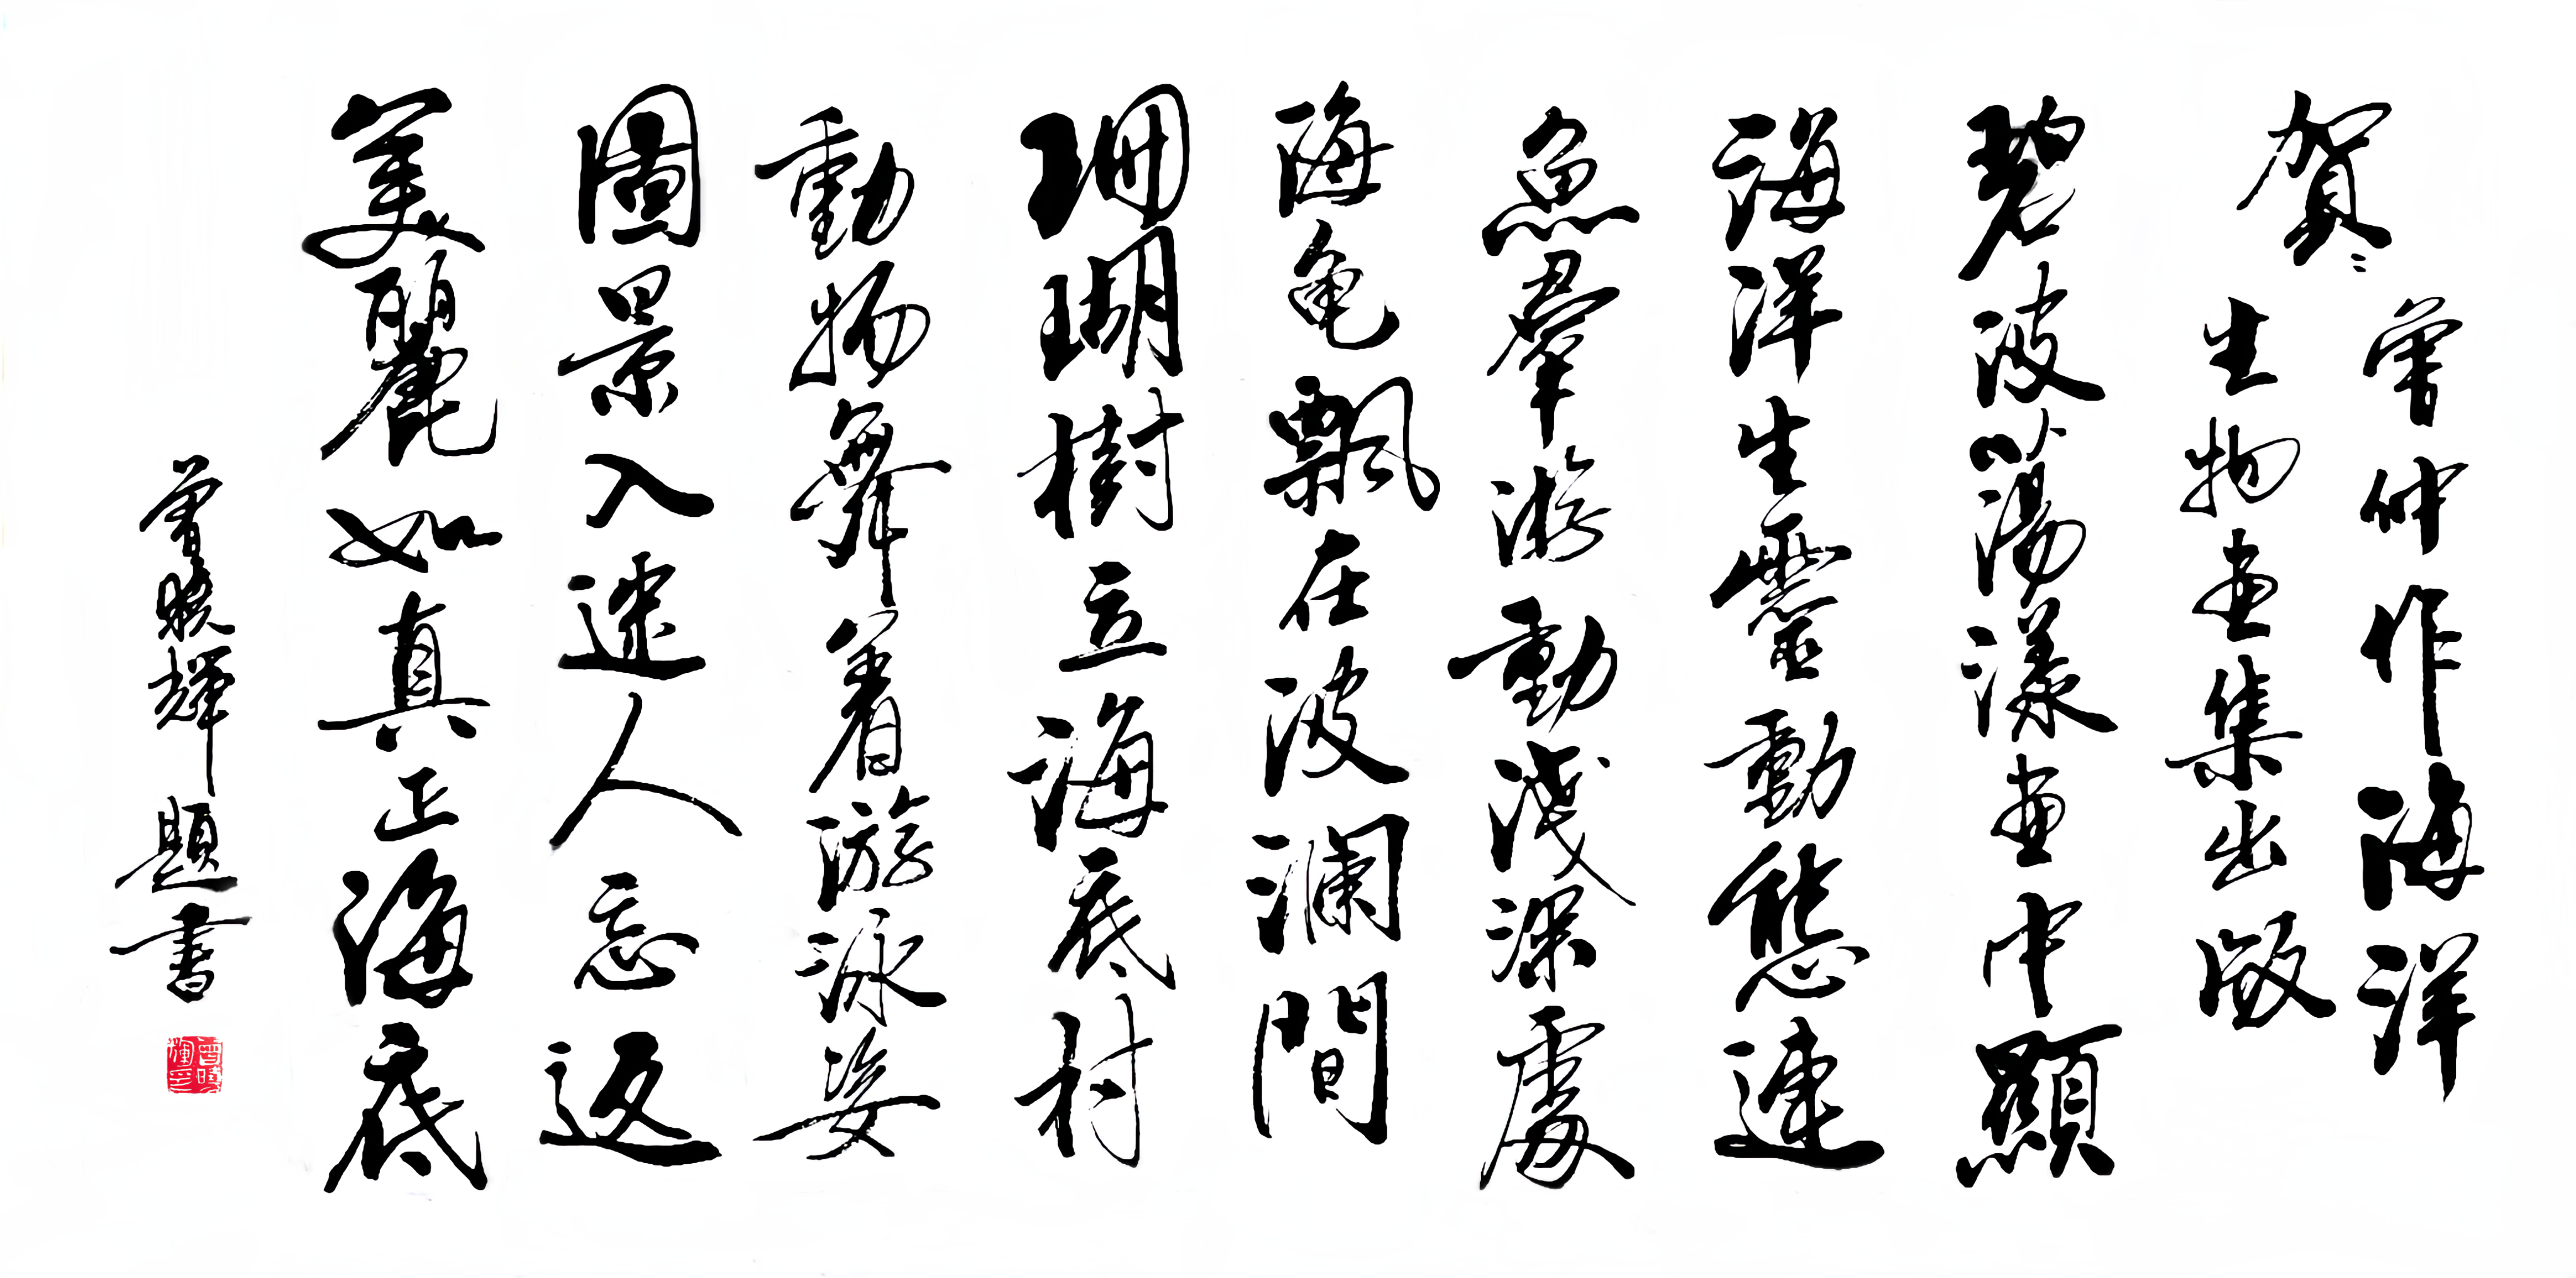 賀:
曾仲作海洋
生物畫集出版
碧波蕩漾畫中顯
海洋生靈動態連
魚羣游動淺深處
海龟飄在波瀾間
珊瑚樹立海底村
動物舞着游泳姿
圖景入迷人忘返
美麗如真正海底
曾曉輝題書